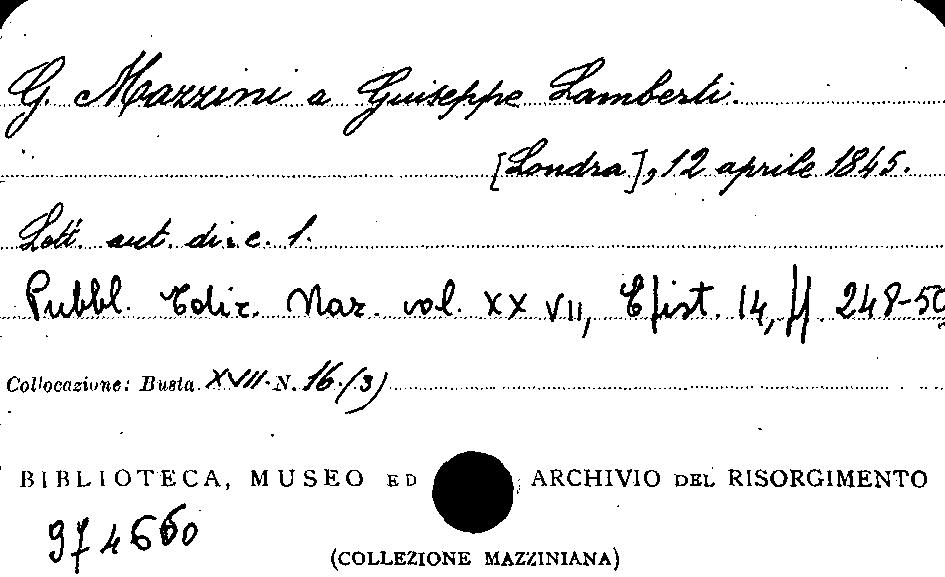 G. Mazzini a Giuseppe Lamberti.
[Londra], 12 aprile 1845.
Lett. aut. di c. 1.
Pubbl. Ediz. Naz. vol. XXVII, Epist. 14, pp. 248-50
Collocazione: Busta XVII N. 16. (3)
BIBLIOTECA, MUSEO ED ARCHIVIO DEL RISORGIMENTO
974660
(COLLEZIONE MAZZINIANA)